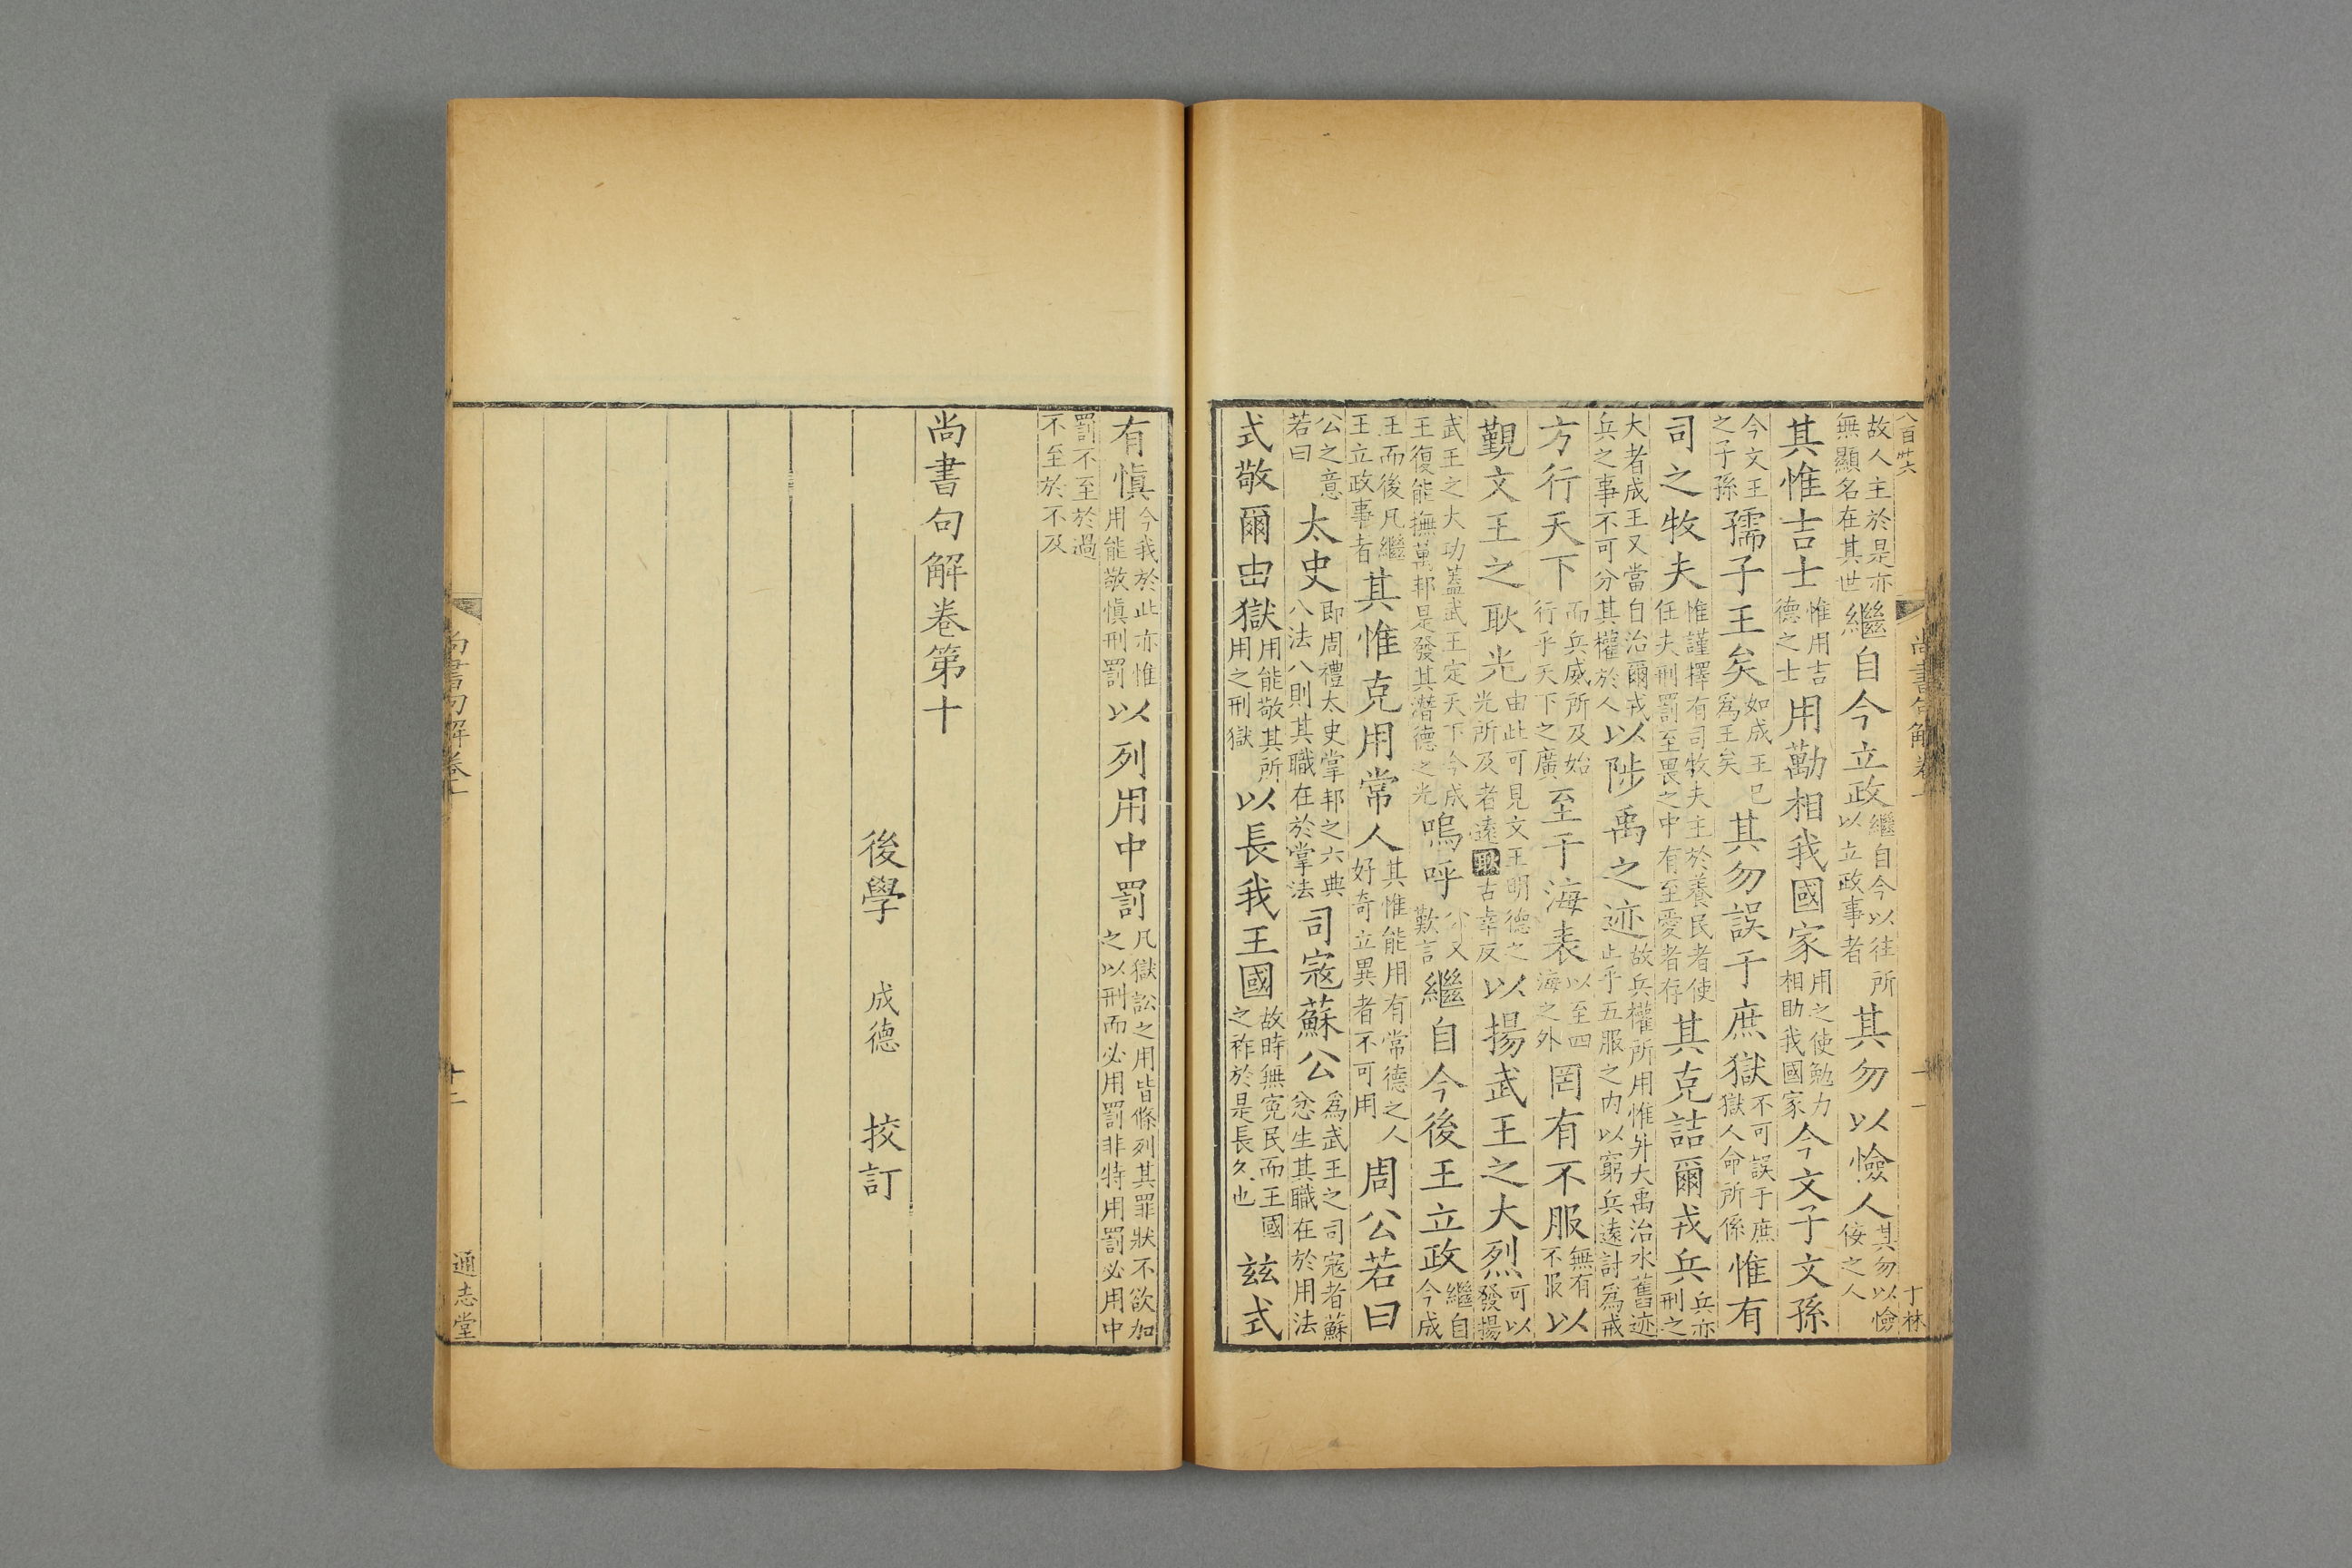 八百卅六
故人主於是亦無顯名在其世繼自今立政繼自今以往所以立政事者其勿以憸人其勿以憸佞之人
其惟吉士惟用吉德之士用勱相我國家用之使勉力相助我國家今文子文孫
今文王之子孫孺子王矣如成王已爲王矣其勿誤于庶獄不可誤于庶獄人命所係惟有
司之牧夫惟謹擇有司牧夫主於養民者使任夫刑罰至畏之中有至愛者存其克詰爾戎兵兵亦刑之
大者成王又當自治爾戎兵之事不可分其權於人以陟禹之迹故兵權所用惟升大禹治水舊迹止乎五服之内以窮兵遠討爲戒
方行天下而兵威所及始行乎天下之廣至于海表以至四海之外罔有不服無有不服以
覲文王之耿光由此可見文王明德之光所及者遠耿古幸反以揚武王之大烈可以發揚
武王之大功蓋武王定天下今成王復能撫萬邦是發其潛德之光嗚呼公又歎言繼自今後王立政繼自今成
王而後凡繼王立政事者其惟克用常人其惟能用有常德之人好奇立異者不可用周公若曰
公之意若曰太史即周禮太史掌邦之六典八法八則其職在於掌法司寇蘇公爲武王之司寇者蘇忿生其職在於用法
式敬爾由獄用能敬其所用之刑獄以長我王國故時無寃民而王國之祚於是長久也兹式
有愼今我於此亦惟用能敬愼刑罰以列用中罰凡獄訟之用皆條列其罪狀不欲加之以刑而必用罰非特用罰必用中
罰不至於過不至於不及
尚書句解卷第十
後學 成德 挍訂
尚書句解卷十
十二
通志堂